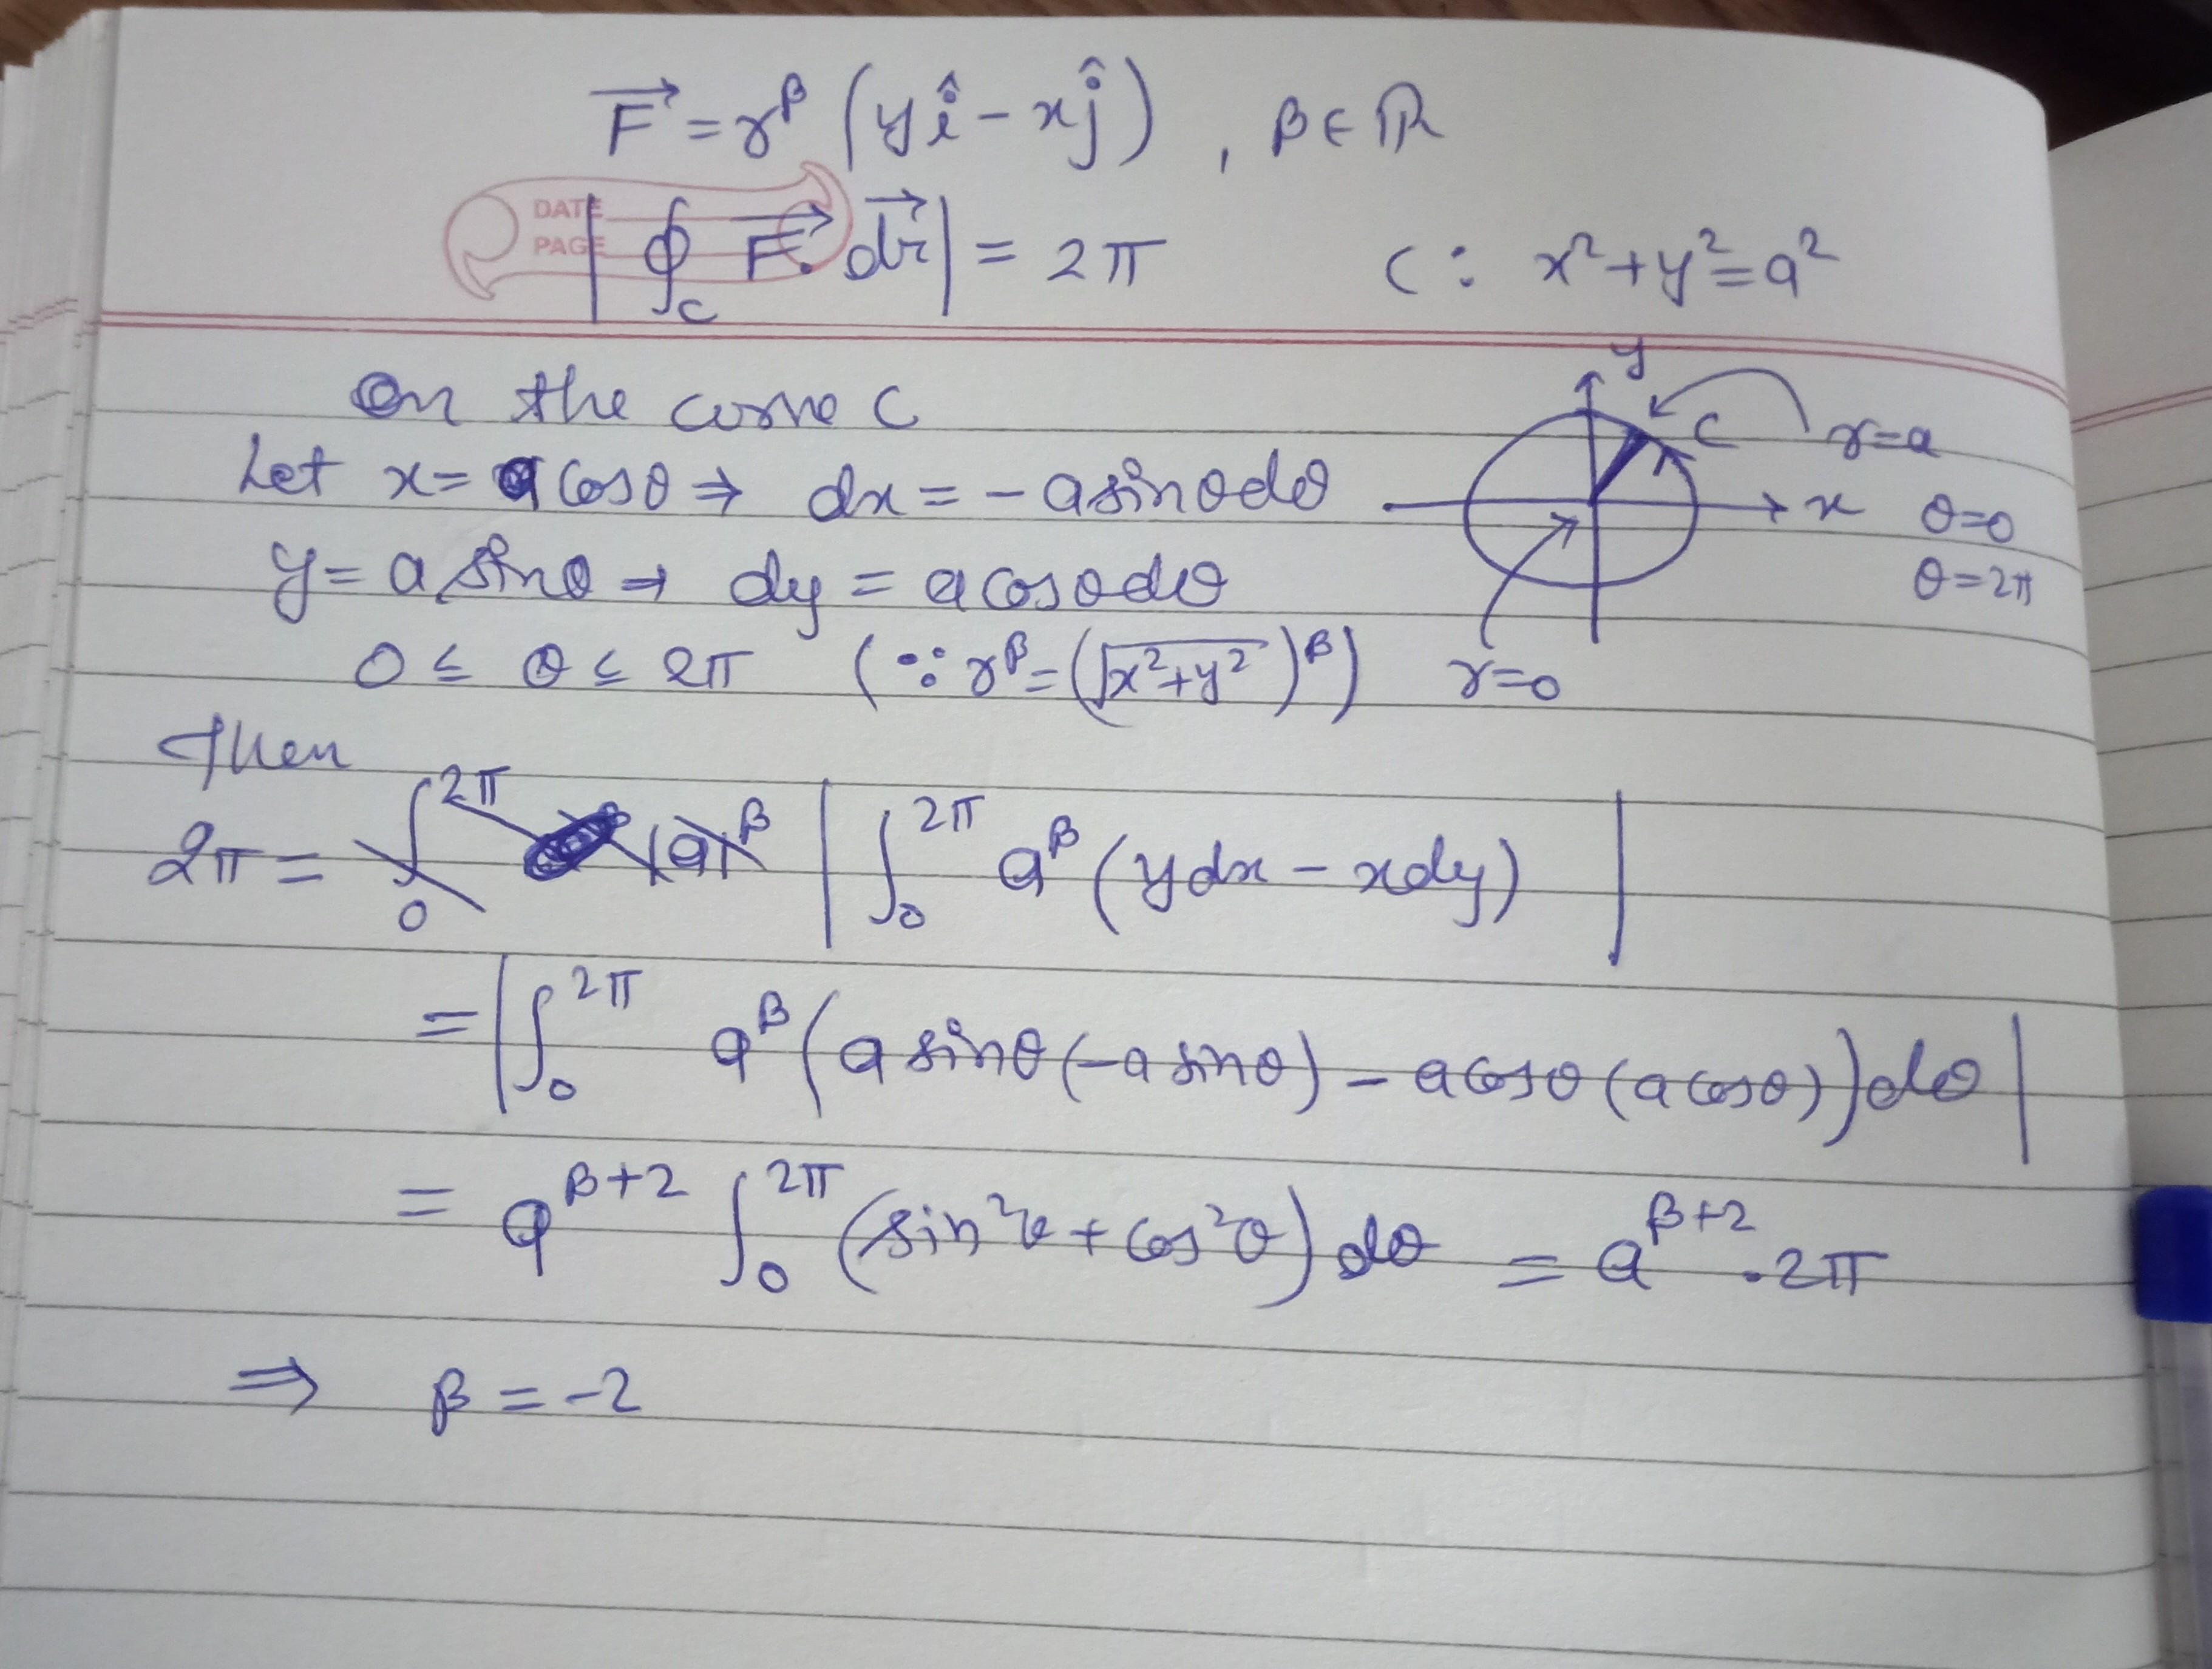 F⃗ = r^β (y î − x ĵ) , β ∈ ℝ
DATE
PAGE
| ∮_C F⃗ . d⃗r | = 2π    C : x² + y² = a²
On the curve C
Let x = a cosθ ⇒ dx = − a sinθ dθ
y = a sinθ → dy = a cosθ dθ
0 ≤ θ ≤ 2π (∵ r^β = (√(x²+y²))^β)
y
C
r=a
x
θ=0
θ=2π
r=0
Then
2π = ∫₀^{2π} |a|^β | ∫₀^{2π} a^β (y dx − x dy) |
= | ∫₀^{2π} a^β (a sinθ (−a sinθ) − a cosθ (a cosθ)) dθ |
= a^{β+2} ∫₀^{2π} (sin²θ + cos²θ) dθ = a^{β+2} . 2π
⇒ β = −2